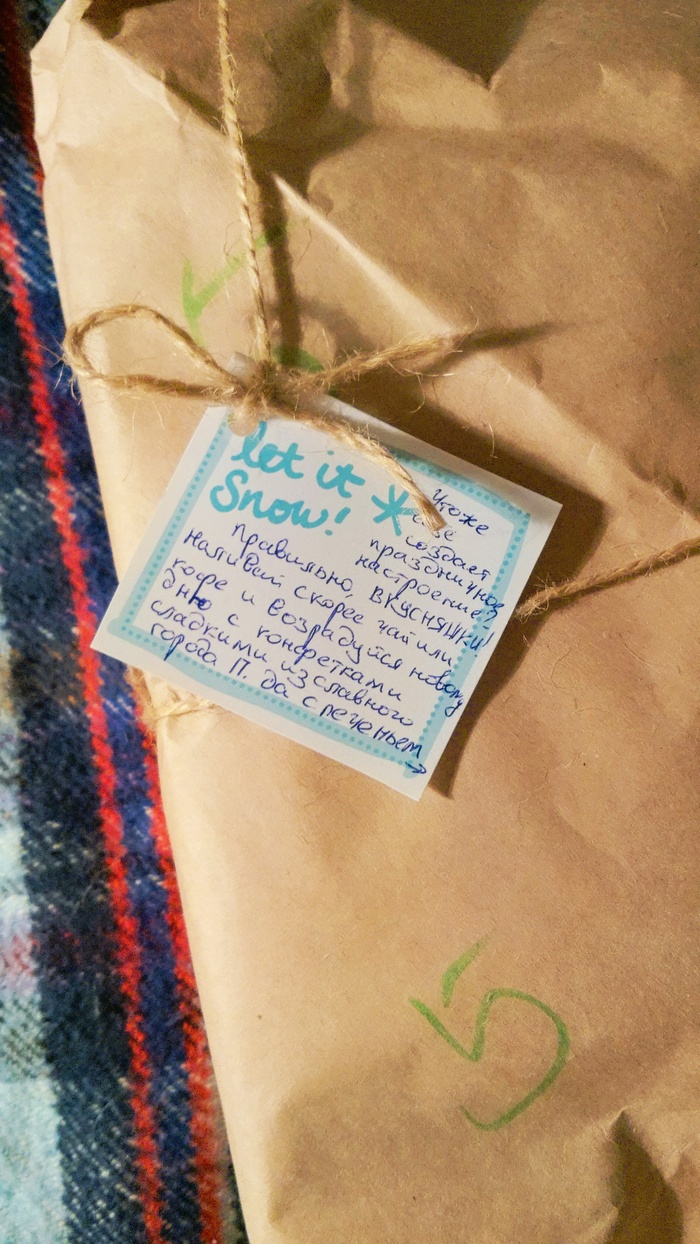 let it
Snow!
Что же
ещё
создает
праздничное
настроение?
Правильно, вкусняшки!
Наливай скорее чай или
кофе и возрадуйся новому
дню с конфетками
сладкими из славного
города П. да с печеньем
→
5